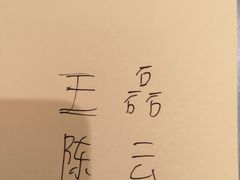 王磊
陈云